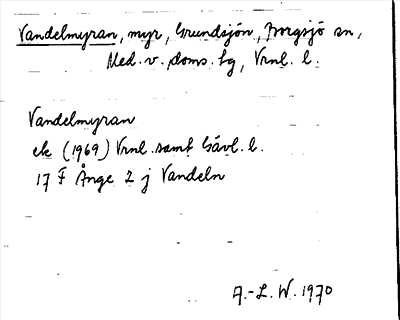 Vandelmyran, myr, Grundsjön, Borgsjö sn,
Med. v. doms. lg, Vrnl. l.
Vandelmyran
ek (1969) Vrnl. samt Gävl. l.
17 F Ånge 2 j Vandeln
A.-L. W. 1970